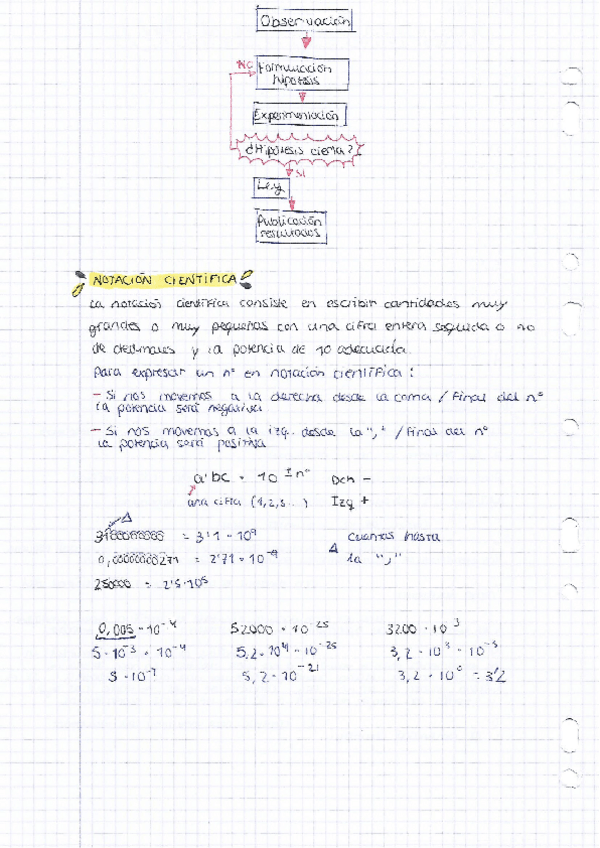 Observación
NO
Formulación
hipótesis
Experimentación
¿Hipótesis cierta?
SI
Ley
Publicación
resultados
NOTACIÓN CIENTÍFICA
La notación científica consiste en escribir cantidades muy
grandes o muy pequeñas con una cifra entera seguida o no
de decimales y la potencia de 10 adecuada.
Para expresar un nº en notación científica:
- Si nos movemos a la derecha desde la coma / Final del nº
la potencia será negativa
- Si nos movemos a la izq. desde la "," / Final del nº
la potencia será positiva
a'bc · 10 ± nº Dch -
una cifra (1,2,3...) Izq +
= 3'1 · 10⁹ Δ cuentas hasta
= 2'71 · 10 la ","
250000 = 2'5·10⁵
0,005 · 10⁻⁴ 52000 · 10⁻²⁵ 3200 · 10³
5 · 10⁻³ · 10⁻⁴ 5,2 · 10⁴ · 10⁻²⁵ 3,2 · 10³ · 10⁻³
5 · 10⁻⁷ 5,2 · 10⁻²¹ 3,2 · 10⁰ = 3'2